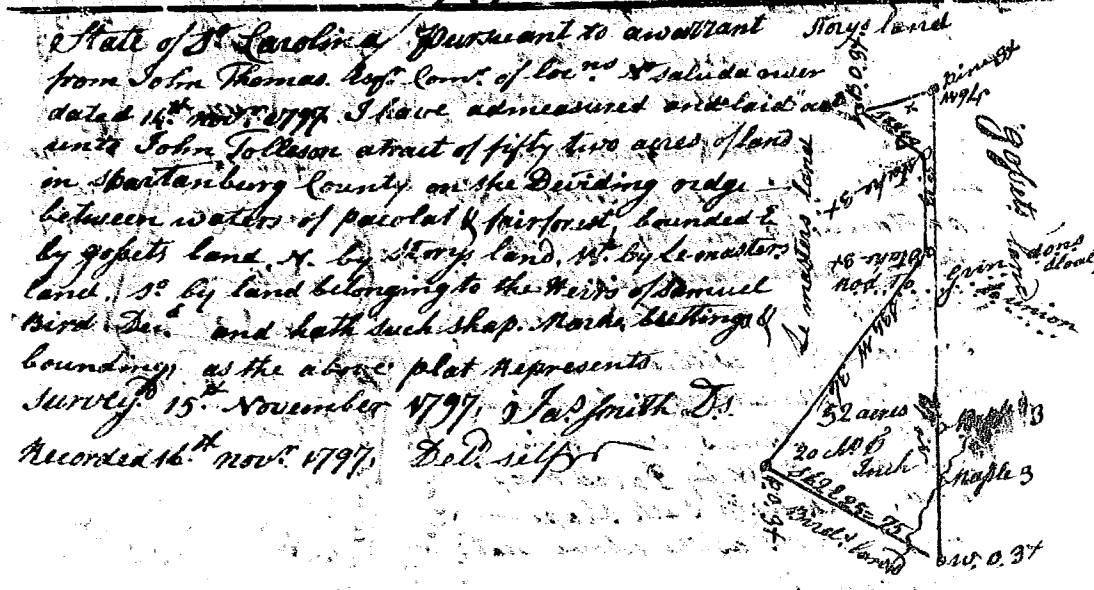 State of So. Carolina Pursuant to a warrant
from John Thomas Esqr. Comr. of locns. No. saluda river
dated 14th novr. 1797 I have admeasured and laid out
unto John Tolleson a tract of fifty two acres of land
in Spartanburg County on the Deviding ridge
between waters of pacolat & fairforest, bounded E
by gossets land. N. by Storys land, Wt. by Lemasters
land. So. by land belonging to the Heirs of Samuel
Bird Decd. and hath such shap. Marks, buttings &
boundings as the above plat Represents
Survey'd 15th November 1797, Jas. Smith Ds.
Recorded 16th novr. 1797. Deld. self
Storys land
pine 3x
gossets land
Lemasters land
52 acres
20 chs. to
Inch
Maple 3
Birds land
W. O. 3x